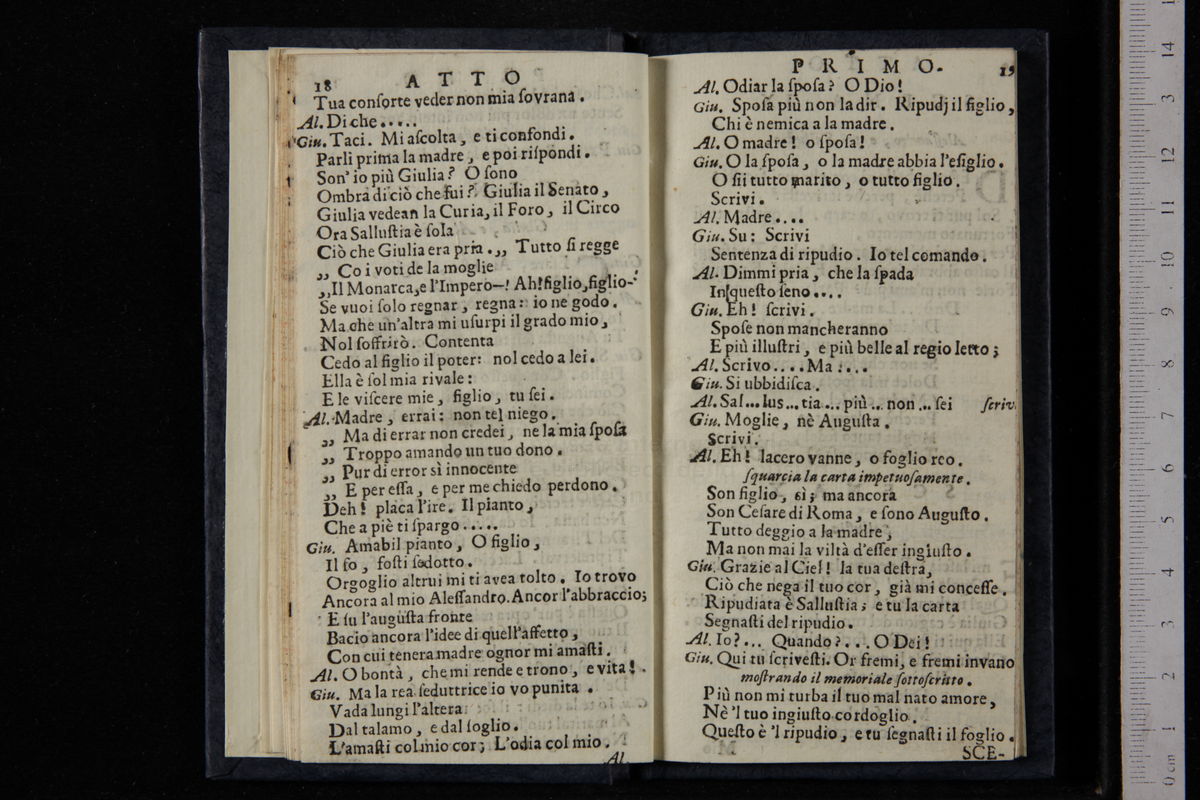 18 ATTO
Tua conſorte veder non mia ſovrana.
Al. Di che.....
Giu. Taci. Mi aſcolta, e ti confondi.
Parli prima la madre, e poi riſpondi.
Son' io più Giulia? O ſono
Ombra di ciò che fui? Giulia il Senato,
Giulia vedean la Curia, il Foro, il Circo
Ora Salluſtia è ſola
Ciò che Giulia era pria. ,, Tutto ſi regge
,, Co i voti de la moglie
,, Il Monarca, e l'Impero—! Ah! figlio, figlio-
Se vuoi ſolo regnar, regna: io ne godo.
Ma che un'altra mi uſurpi il grado mio,
Nol ſoffrirò. Contenta
Cedo al figlio il poter: nol cedo a lei.
Ella è ſol mia rivale:
E le viſcere mie, figlio, tu ſei.
Al. Madre, errai: non tel niego.
,, Ma di error non credei, ne la mia ſpoſa
,, Troppo amando un tuo dono.
,, Pur di error sì innocente
,, E per eſſa, e per me chiedo perdono.
Deh! placa l'ire. Il pianto,
Che a piè ti ſpargo.....
Giu. Amabil pianto, O figlio,
Il ſo, foſti ſedotto.
Orgoglio altrui mi ti avea tolto. Io trovo
Ancora al mio Aleſſandro. Ancor l'abbraccio;
E ſu l'auguſta fronte
Bacio ancora l'idee di quell'affetto,
Con cui tenera madre ognor mi amaſti.
Al. O bontà, che mi rende e trono, e vita!
Giu. Ma la rea ſeduttrice io vo punita.
Vada lungi l'altera
Dal talamo, e dal ſoglio.
L'amaſti col mio cor; L'odia col mio.
Al.
PRIMO. 19
Al. Odiar la ſpoſa? O Dio!
Giu. Spoſa più non la dir. Ripudj il figlio,
Chi è nemica a la madre.
Al. O madre! o ſpoſa!
Giu. O la ſpoſa, o la madre abbia l'eſiglio.
O ſii tutto marito, o tutto figlio.
Scrivi.
Al. Madre....
Giu. Su: Scrivi
Sentenza di ripudio. Io tel comando.
Al. Dimmi pria, che la ſpada
In queſto ſeno....
Giu. Eh! ſcrivi.
Spoſe non mancheranno
E più illuſtri, e più belle al regio letto;
Al. Scrivo.... Ma....
Giu. Si ubbidiſca.
Al. Sal... lus... tia... più... non... ſei ſcriv.
Giu. Moglie, nè Auguſta.
Scrivi.
Al. Eh! lacero vanne, o foglio reo.
ſquarcia la carta impetuoſamente.
Son figlio, sì; ma ancora
Son Ceſare di Roma, e ſono Auguſto.
Tutto deggio a la madre,
Ma non mai la viltà d'eſſer ingiuſto.
Giu. Grazie al Ciel! la tua deſtra,
Ciò che nega il tuo cor, già mi conceſſe.
Ripudiata è Salluſtia; e tu la carta
Segnaſti del ripudio.
Al. Io?... Quando?... O Dei!
Giu. Qui tu ſcriveſti. Or fremi, e fremi invano
moſtrando il memoriale ſottoſcritto.
Più non mi turba il tuo mal nato amore,
Nè 'l tuo ingiuſto cordoglio.
Queſto è 'l ripudio, e tu ſegnaſti il foglio.
SCE-